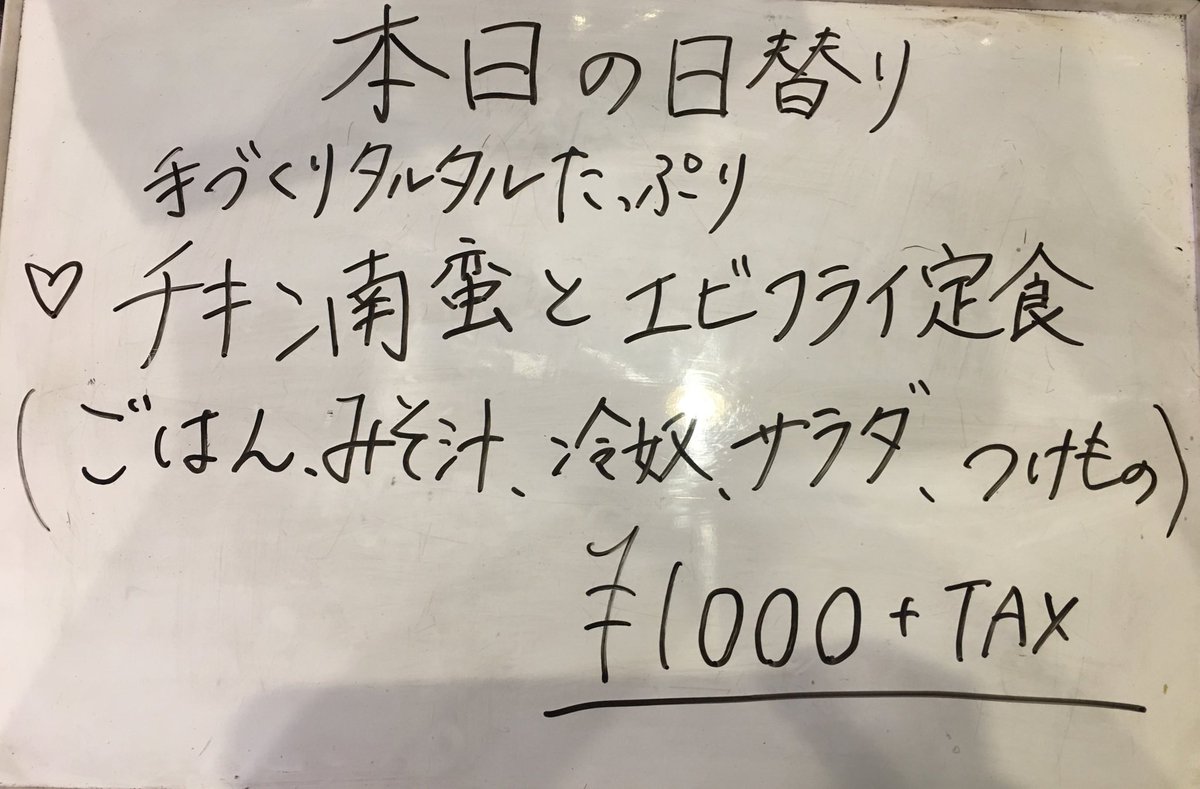 本日の日替り
手づくりタルタルたっぷり
♡ チキン南蛮とエビフライ定食
(ごはん、みそ汁、冷奴、サラダ、つけもの)
¥1000+TAX